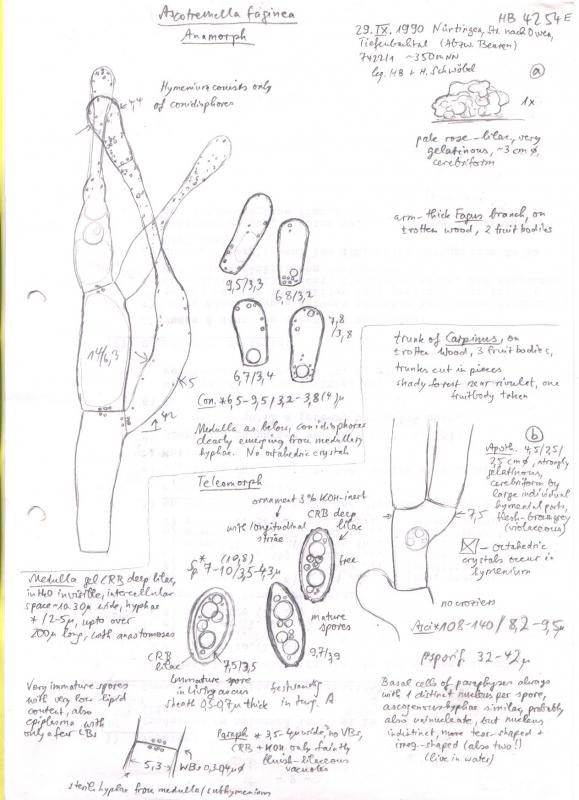 Ascotremella faginea
Anamorph
HB 4254E
29.IX.1990 Nürtingen, Str. nach Owen,
Tiefenbachtal (Abzw. Beuren)
7422/1 ~350m NN
leg. HB + H. Schwöbel
a
1x
pale rose-lilac, very
gelatinous, ~3 cm ø,
cerebriform
Hymenium consists only
of conidiophores
4,4
arm-thick Fagus branch, on
rotten wood, 2 fruit bodies
9,5/3,3
6,8/3,2
6,7/3,4
7,8
/3,8
14/6,3
5
4,2
Con. *6,5-9,5/3,2-3,8(4) µ
Medulla as below, conidiophores
clearly emerging from medullary
hyphae. No octahedric crystals
trunk of Carpinus, on
rotten wood, 3 fruit bodies,
trunks cut in pieces
shady forest near rivulet, one
fruitbody taken
b
Apoth. 4,5/2,5/
2,5 cm ø, strongly
gelatinous,
cerebriform by
large individual
hymenial parts,
flesh-
(violaceous)
7,5
- octahedric
crystals occur in
hymenium
no croziers
Asci *108-140/8,2-9,5µ
p. sporif. 32-42µ
Teleomorph
ornament 3% KOH-inert
with longitudinal
striae
CRB deep
lilac
free
* (10,8)
Sp 7-10/3,5-4,3µ
mature
spores
9,7/3,9
CRB
lilac
7,5/3,5
Immature spore
in living ascus
sheath 0,5-0,7µ thick
in turg. A
Medulla gel CRB deep lilac,
in H2O invisible, intercellular
space ~10-30µ wide, hyphae
* /2-5µ, up to over
200µ long, with anastomoses
Very immature spores
with very low lipid
content, also
epiplasma with
only a few LBs
Paraph * 3,5-4µ wide, no VBs,
CRB + KOH only faintly
bluish-lilaceous
vacuoles
5,3
WBs 0,3-0,4µ ø
sterile hyphae from medulla/subhymenium
Basal cells of paraphyses always
with 1 distinct nucleus per spore,
ascogenous hyphae similar, probably
also uninucleate, but nucleus
indistinct, more tear-shaped +
irreg.-shaped (also two!)
(live in water)